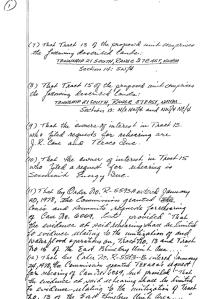 1
(7) That Tract 13 of the proposed unit comprises
the following described lands:
TOWNSHIP 21 SOUTH, RANGE 37 EAST, NMPM
Section 14: SW/4
(8) That Tract 15 of the proposed unit comprises
the following described lands:
TOWNSHIP 21 SOUTH, RANGE 37 EAST, NMPM
(9) That the owners of interest in Tract 13
who filed requests for rehearing are
J.R. Cone and Texaco Inc.
(10) That the owner of interest in Tract 15
who filed a request for rehearing is
Summit Energy Inc.
(11) That by Order No. R-5593-A entered January
10, 1978, the Commission granted
Cone's and Summit's requests for rehearing
of Case No. 6069, but provided that
the evidence at said rehearing shall be limited
to evidence relating to the
waterflood operations on Tract No. 13 and Tract
No. 15 of the East Blinebry Unit Area
(12) That by Order No. R-5593-B entered January
1978, the Commission granted Texaco's request
for rehearing of Case No. 6069, but provided that
the evidence at said rehearing shall be limited
to evidence relating to the
No. 13 of the East Blinebry Unit Area